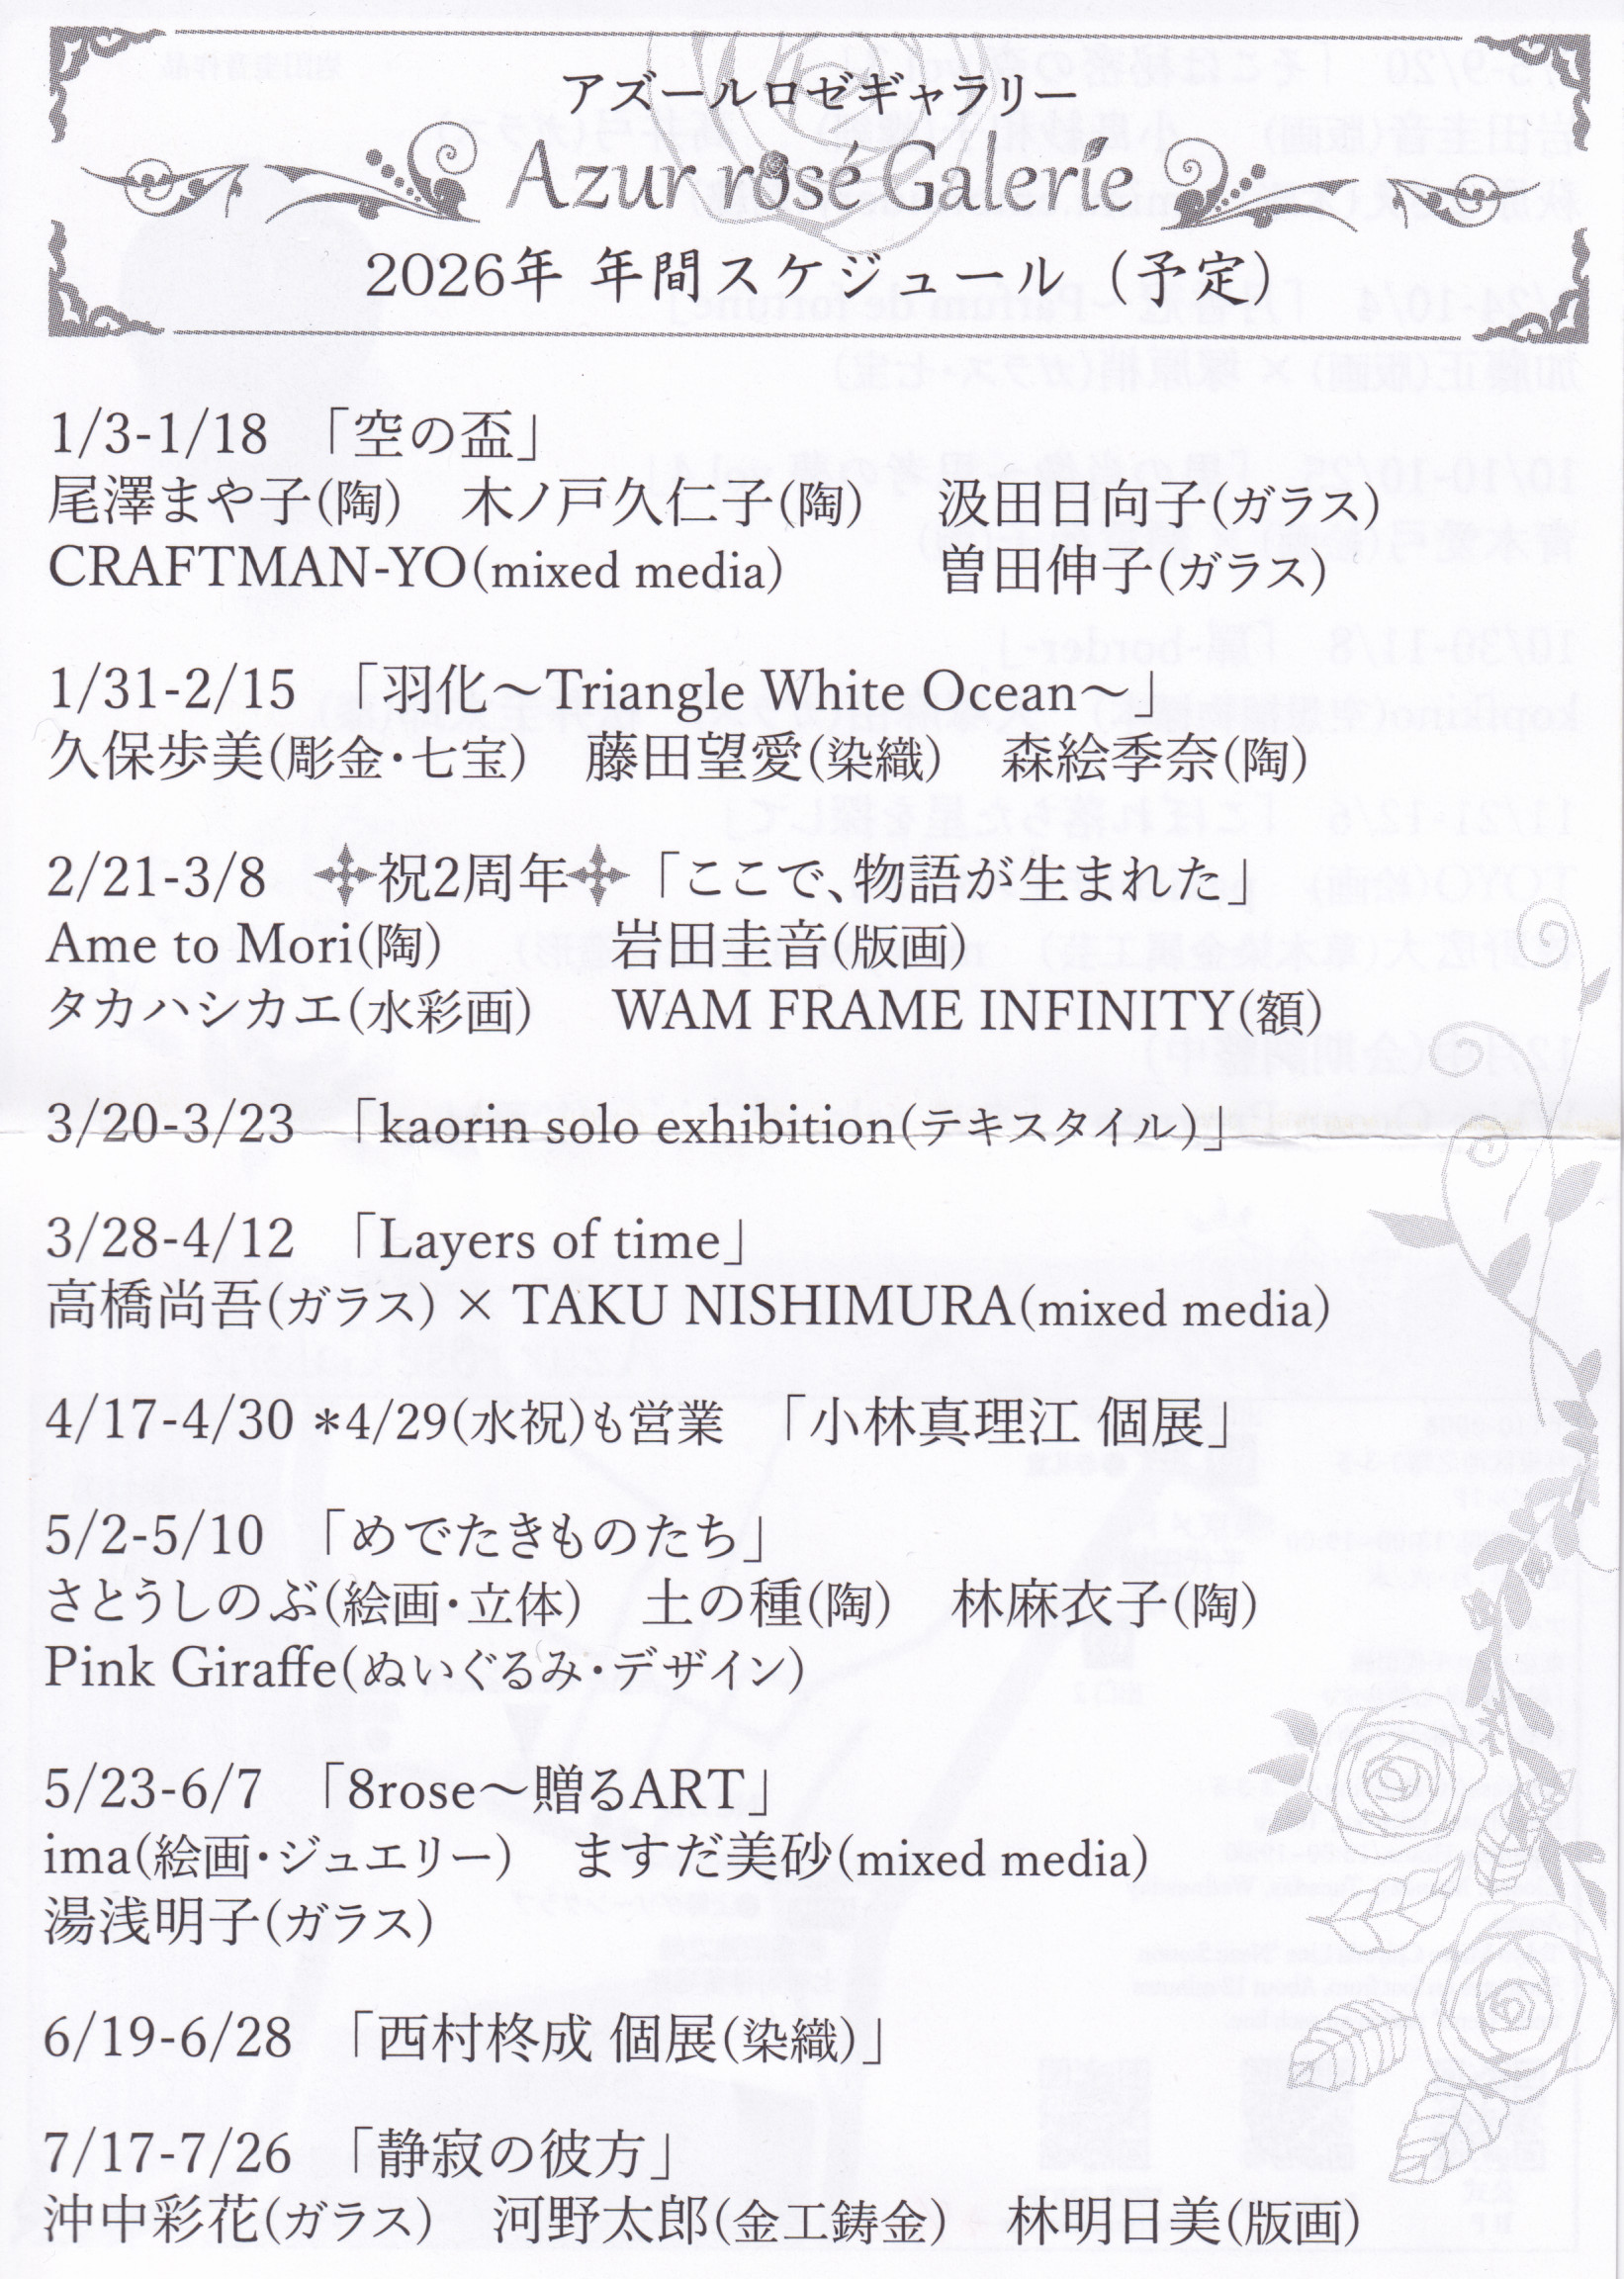 アズールロゼギャラリー
Azur rosé Galerie
2026年 年間スケジュール（予定）
1/3-1/18 「空の盃」
尾澤まや子(陶) 木ノ戸久仁子(陶) 汲田日向子(ガラス)
CRAFTMAN-YO(mixed media) 曽田伸子(ガラス)
1/31-2/15 「羽化～Triangle White Ocean～」
久保歩美(彫金・七宝) 藤田望愛(染織) 森絵季奈(陶)
2/21-3/8 祝2周年「ここで、物語が生まれた」
Ame to Mori(陶) 岩田圭音(版画)
タカハシカエ(水彩画) WAM FRAME INFINITY(額)
3/20-3/23 「kaorin solo exhibition(テキスタイル)」
3/28-4/12 「Layers of time」
高橋尚吾(ガラス) × TAKU NISHIMURA(mixed media)
4/17-4/30 *4/29(水祝)も営業 「小林真理江 個展」
5/2-5/10 「めでたきものたち」
さとうしのぶ(絵画・立体) 土の種(陶) 林麻衣子(陶)
Pink Giraffe(ぬいぐるみ・デザイン)
5/23-6/7 「8rose～贈るART」
ima(絵画・ジュエリー) ますだ美砂(mixed media)
湯浅明子(ガラス)
6/19-6/28 「西村柊成 個展(染織)」
7/17-7/26 「静寂の彼方」
沖中彩花(ガラス) 河野太郎(金工鋳金) 林明日美(版画)